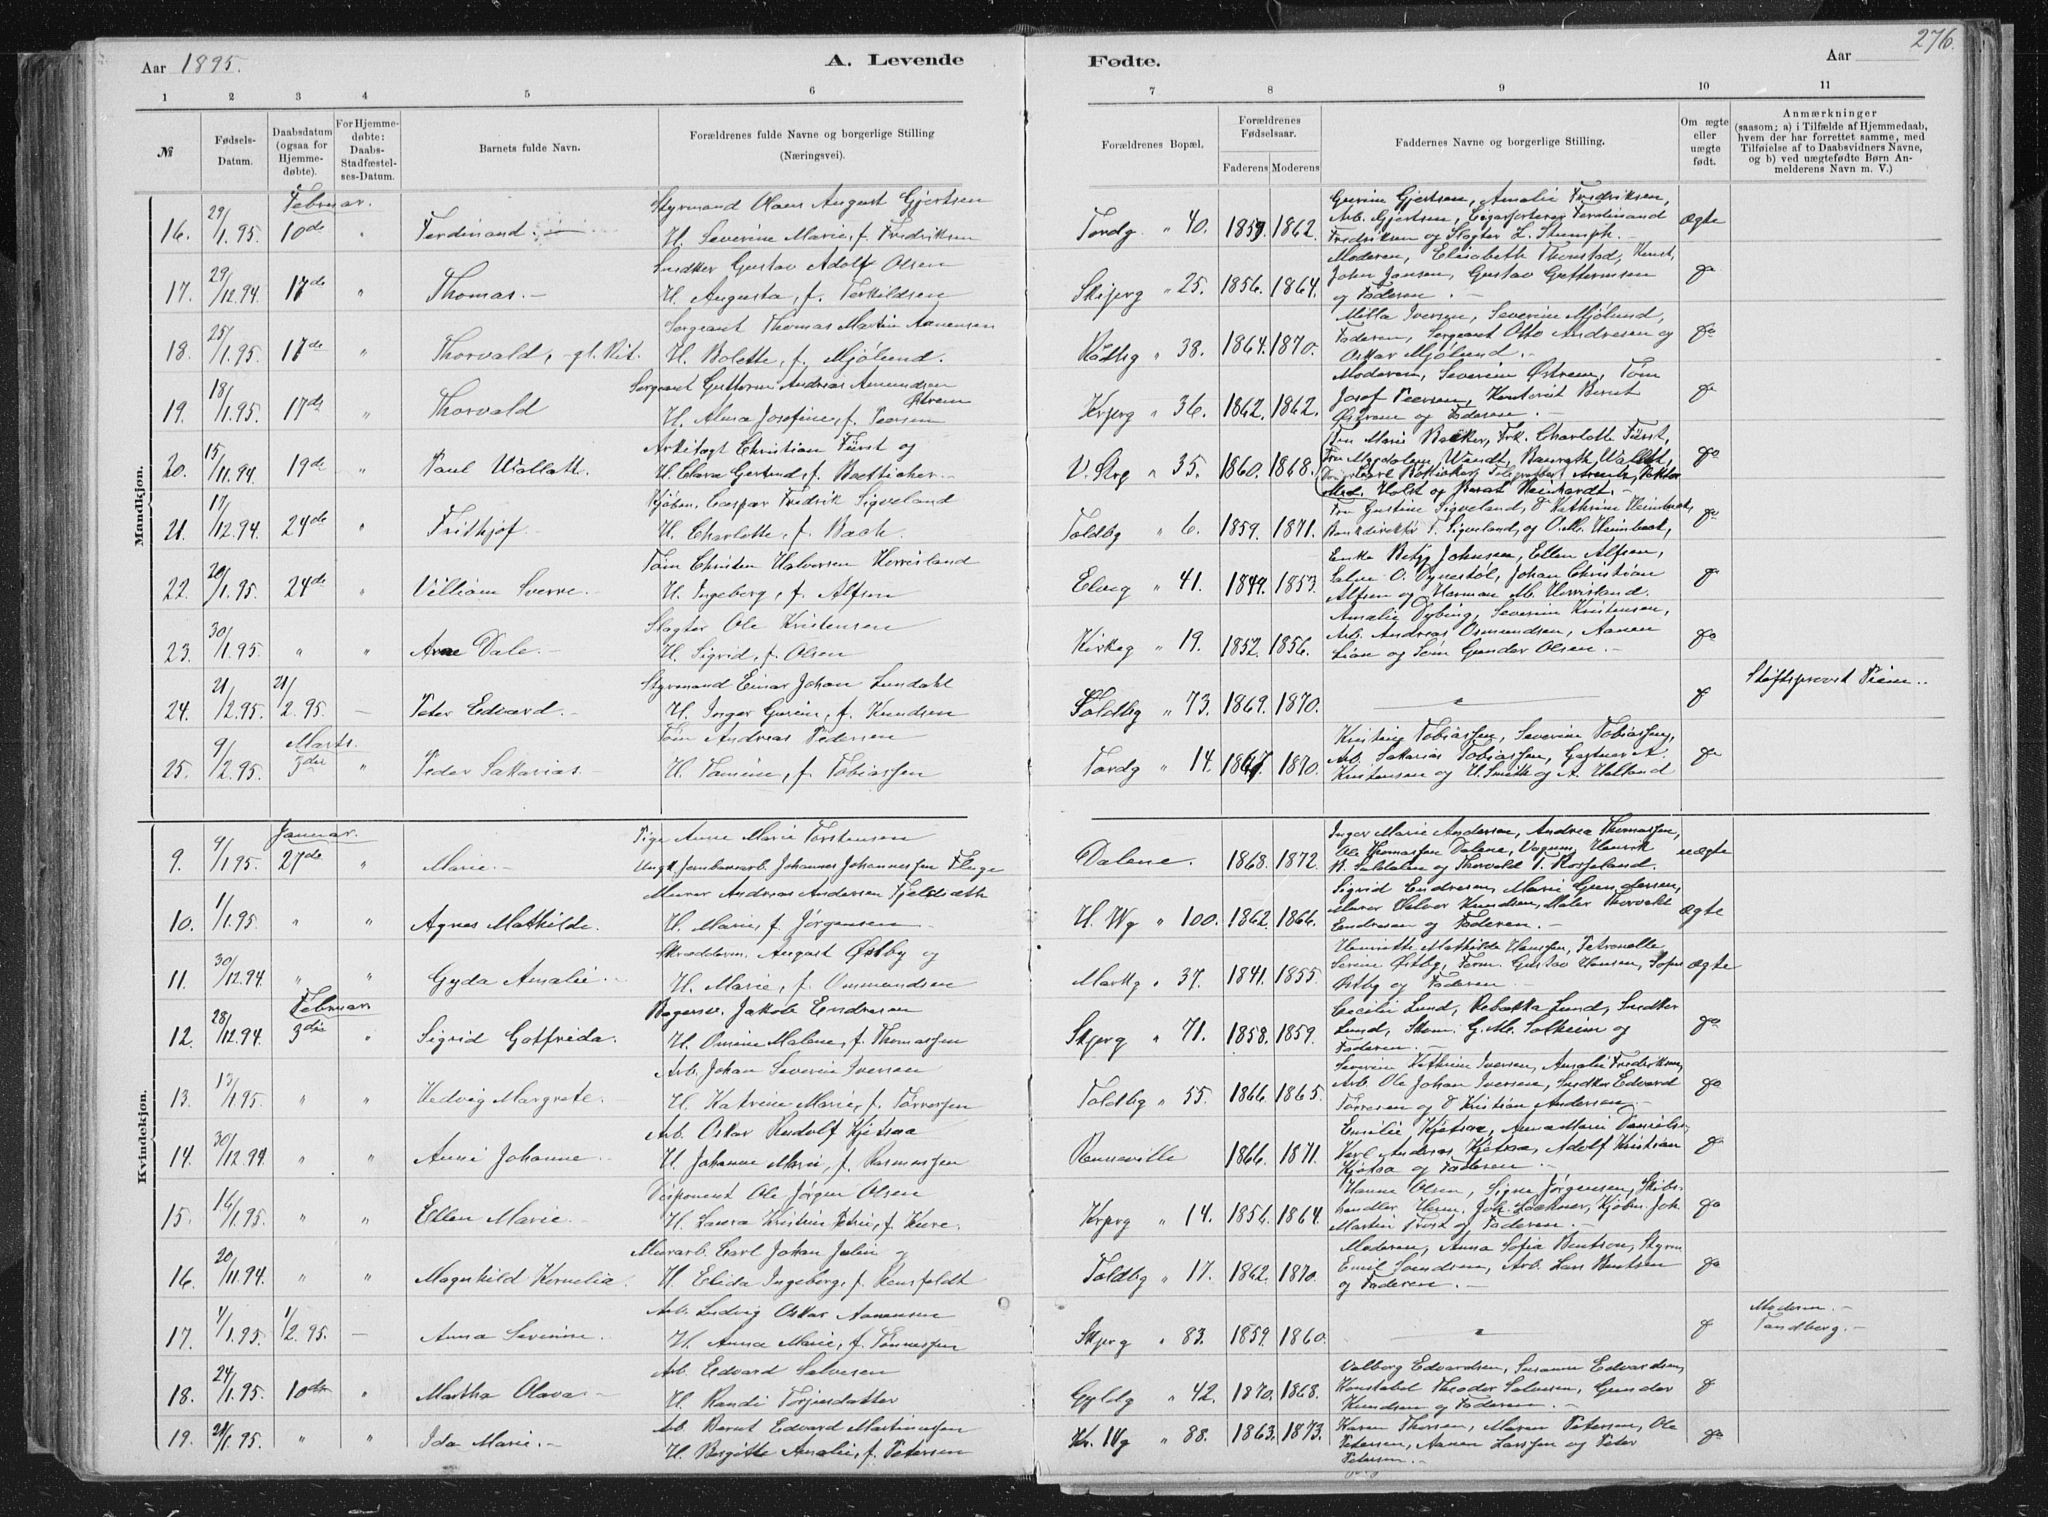 Aar 1895. A. Levende Fødte. Aar 276.
1 2 3 4 5 6 7 8 9 10 11
№
Fødsels-Datum.
Daabsdatum (ogsaa for Hjemme-døbte).
For Hjemme-døbte: Daabs-Stadfæstel-ses-Datum.
Barnets fulde Navn.
Forældrenes fulde Navne og borgerlige Stilling
(Næringsvei).
Forældrenes Bopæl.
Forældrenes Fødselsaar.
Faderens Moderens
Faddernes Navne og borgerlige Stilling.
Om ægte eller uægte født.
Anmærkninger
(saasom; a) i Tilfælde af Hjemmedaab,
hvem der har forrettet samme, med
Tilføielse af to Daabsvidners Navne,
og b) ved uægtefødte Børn An-
melderens Navn m. V.)
Mandkjøn.
Februar.
Styrmand Olaus August Gjertsen
Gurine Gjertsen, Amalie Fredriksen,
Arb. Gjertsen, Cigarsorterer Ferdinand
16. 29/1.95. 10de " Ferdinand. H. Severine Marie, f. Fredriksen Tordg " 40. 1859 1862. Fredriksen og Slagter L. Stumph. Ægte
Snedker Gustav Adolf Olsen
Moderen, Elisabeth Thomstad,
John Jansen, Gustav Guttormsen
17. 29/12.94. 17de " Thomas. H. Augusta, f. Terkildsen Skipperg " 25. 1856. 1864. og Faderen. do
Sergeant Thomas Martin Aanensen
Milla Iversen, Severine Mjølund,
Faderen, Sergeant Otto Andresen og
18. 25/1.95. 17de " Thorvald, gl. Rit. H. Bolette, f. Mjølund. Rådhg " 38. 1864. 1870. Oskar Mjølund. do
Sergeant Guttorm Andreas Amundsen Østrem
Moderen, Severine Østrem, Tøm
Josef Peersen, Kontorist Bernt
19. 18/1.95. 17de " Thorvald H. Alma Josefine, f. Peersen Krperg " 36. 1862. 1862. Østrem og Faderen. do
Arkitegt Christian Fürst og
Fru Marie Backer, Frk. Charlotte Fürst,
Fru Magdalene Wendt,
20. 15/11.94. 19de " Paul Wallatt. H. Clara Gertrud, f. Boetticher V. Strg " 35. 1860. 1868. do
Med. Holst og Reinhardt.
Kjøbm. Caspar Fredrik Sigveland
Fru Gustine Sigveland,
21. 17/12.94. 24de " Frithjof H. Charlotte, f. Bach. Toldbg " 6. 1859. 1871. Bankdirektør T. Sigveland, og do
Tøm Christen Halvorsen Herrisland
Enke Johnsen, Ellen Alfsen,
Salve O. Dynestøl, Johan Christian
22. 20/1.95. 24de " Villiam Sverre. H. Ingeborg, f. Alfsen Elveg " 41. 1849. 1853. Alfsen og Herman do
Slagter Ole Kristensen
Amalie Dybing, Severine Kristensen,
Arb. Andreas Osmundsen, Aanen
23. 30/1.95. " " Arne Dale. H. Sigrid, f. Olsen Kirkeg " 19. 1852. 1856. Lian og Tøm Gunder Olsen. do
Styrmand Einar Johan Lundahl
24. 21/2.95. 21/2.95. — Peter Edvard. H. Inger Gurine, f. Knudsen Toldbg " 73. 1869. 1870. Stiftsprovst Piene.
Marts.
Tøm Andreas Pedersen
Kristine Tobiassen, Severine Tobiassen,
Arb. Sakarias Tobiassen, Gartner A.
25. 9/2.95. 3die " Peder Sakarias H. Tomine, f. Tobiassen Tordg " 14. 1867. 1870. Kristensen og H. Smith og A. Holland do
Kvindekjøn.
Januar.
Pige Anne Marie Torstensen
Inger Marie Andersen, Andrea Thomassen,
Ole Thomassen Dalene, Vognm Henrik
9. 9/1.95. 27de " Marie. Ungk. Jernbanearb. Johannes Johannessen Fleige Dalene. 1868. 1872. og Thorvald T. Rosseland. uægte
Murer Andreas Andersen Fjeldsæth
Sigrid Endresen, Marie Gundersen,
Murer Halvor Knudsen, Maler Thorvald
10. 1/1.95. " " Agnes Mathilde. H. Marie, f. Jørgensen H. Wg " 100. 1862. 1866. Endresen og Faderen. Ægte
Skræderm. August Østby og
Henriette Mathilde Hanssen, Petronelle
Serine Østby, Form. Gustav Hansen,
11. 30/12.94. " " Gyda Amalie. H. Marie, f. Ommundsen Markg " 37. 1841. 1855. Østby og Faderen. ægte
Februar
Bagersv. Jakob Endresen
Cecilie Lund, Rebekka Lund, Snedker
Lund, Skom. G. M. Solheim og
12. 28/12.94. 3die " Sigrid Gotfrida. H. Omine Malene, f. Thomassen Skperg " 71. 1858. 1859. Faderen. do
Arb. Johan Severin Iversen
Severine Kathrine Iversen, Amalie Fredriksen,
Arb. Ole Johan Iversen, Snedker Edvard
13. 13/1.95. " " Hedvig Margrete. H. Katrine Marie, f. Tørressen Toldbg " 55. 1866. 1865. Tørresen og Kristian Andersen. do
Arb. Oskar Rudolf Kjetsaa
Emilie Kjetsaa, Anne Marie Danielsen,
Karl Andreas Kjetsaa, Adolf Kristian
14. 30/12.94. " " Anni Johanne. H. Johanne Marie, f. Rasmussen Renneville 1866. 1871. Kjetsaa og Faderen. do
Disponent Ole Jørgen Olsen
Hanne Olsen, Signe Jørgensen, Skibs-
handler Herm. Joh. Kjøbm. Joh.
15. 16/1.95. " " Ellen Marie. H. Laura Kristine Petrine, f. Kure. Krperg " 14. 1856. 1864. Martin Trost og Faderen. do
Murarb. Carl Johan Julin og
Moderen, Anna Sofia Bentsen, Styrm
Emil Svendsen, Arb. Lars Bentsen
16. 20/11.94. " " Magnhild Kornelia. H. Elida Ingeborg, f. Rensfeldt Toldbg " 17. 1862. 1870. og Faderen. do
Arb. Ludvig Oskar Aanensen
Moderen.
17. 4/1.95. 1/2.95. — Anna Severine. H. Anna Marie, f. Tønnessen Skperg " 83. 1859. 1860. Tandberg.
Arb. Edvard Salvesen
Valborg Edvardsen, Susanne Edvardsen,
Konstabel Theodor Salvesen, Gunder
18. 24/1.95. 10de " Martha Olava H. Randi Torjusdatter Gyldg " 42. 1870. 1868. Knudsen og Faderen. do
Arb. Bernt Edvard Martinussen
Karen Thorsen, Maren Petersen, Ole
19. 21/1.95. " " Ida Marie. H. Bergitte Amalie, f. Petersen Kr. Wg " 88. 1863. 1873. Petersen, Aanen Larssen og Peter do
Petersen.